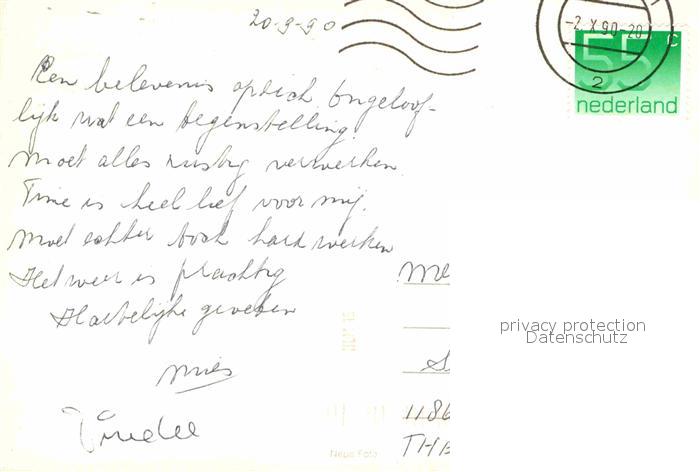 20-9-90
-2.X.90-20
2
55 c
nederland
Een belevenis optisch. Ongeloof-
lijk wat een tegenstelling.
Moet alles rustig verwerken.
Tine is heel lief voor mij.
Moet echter toch hard werken
Het weer is prachtig
Hartelijke groeten
Mies
1186
privacy protection
Datenschutz
Neue Foto